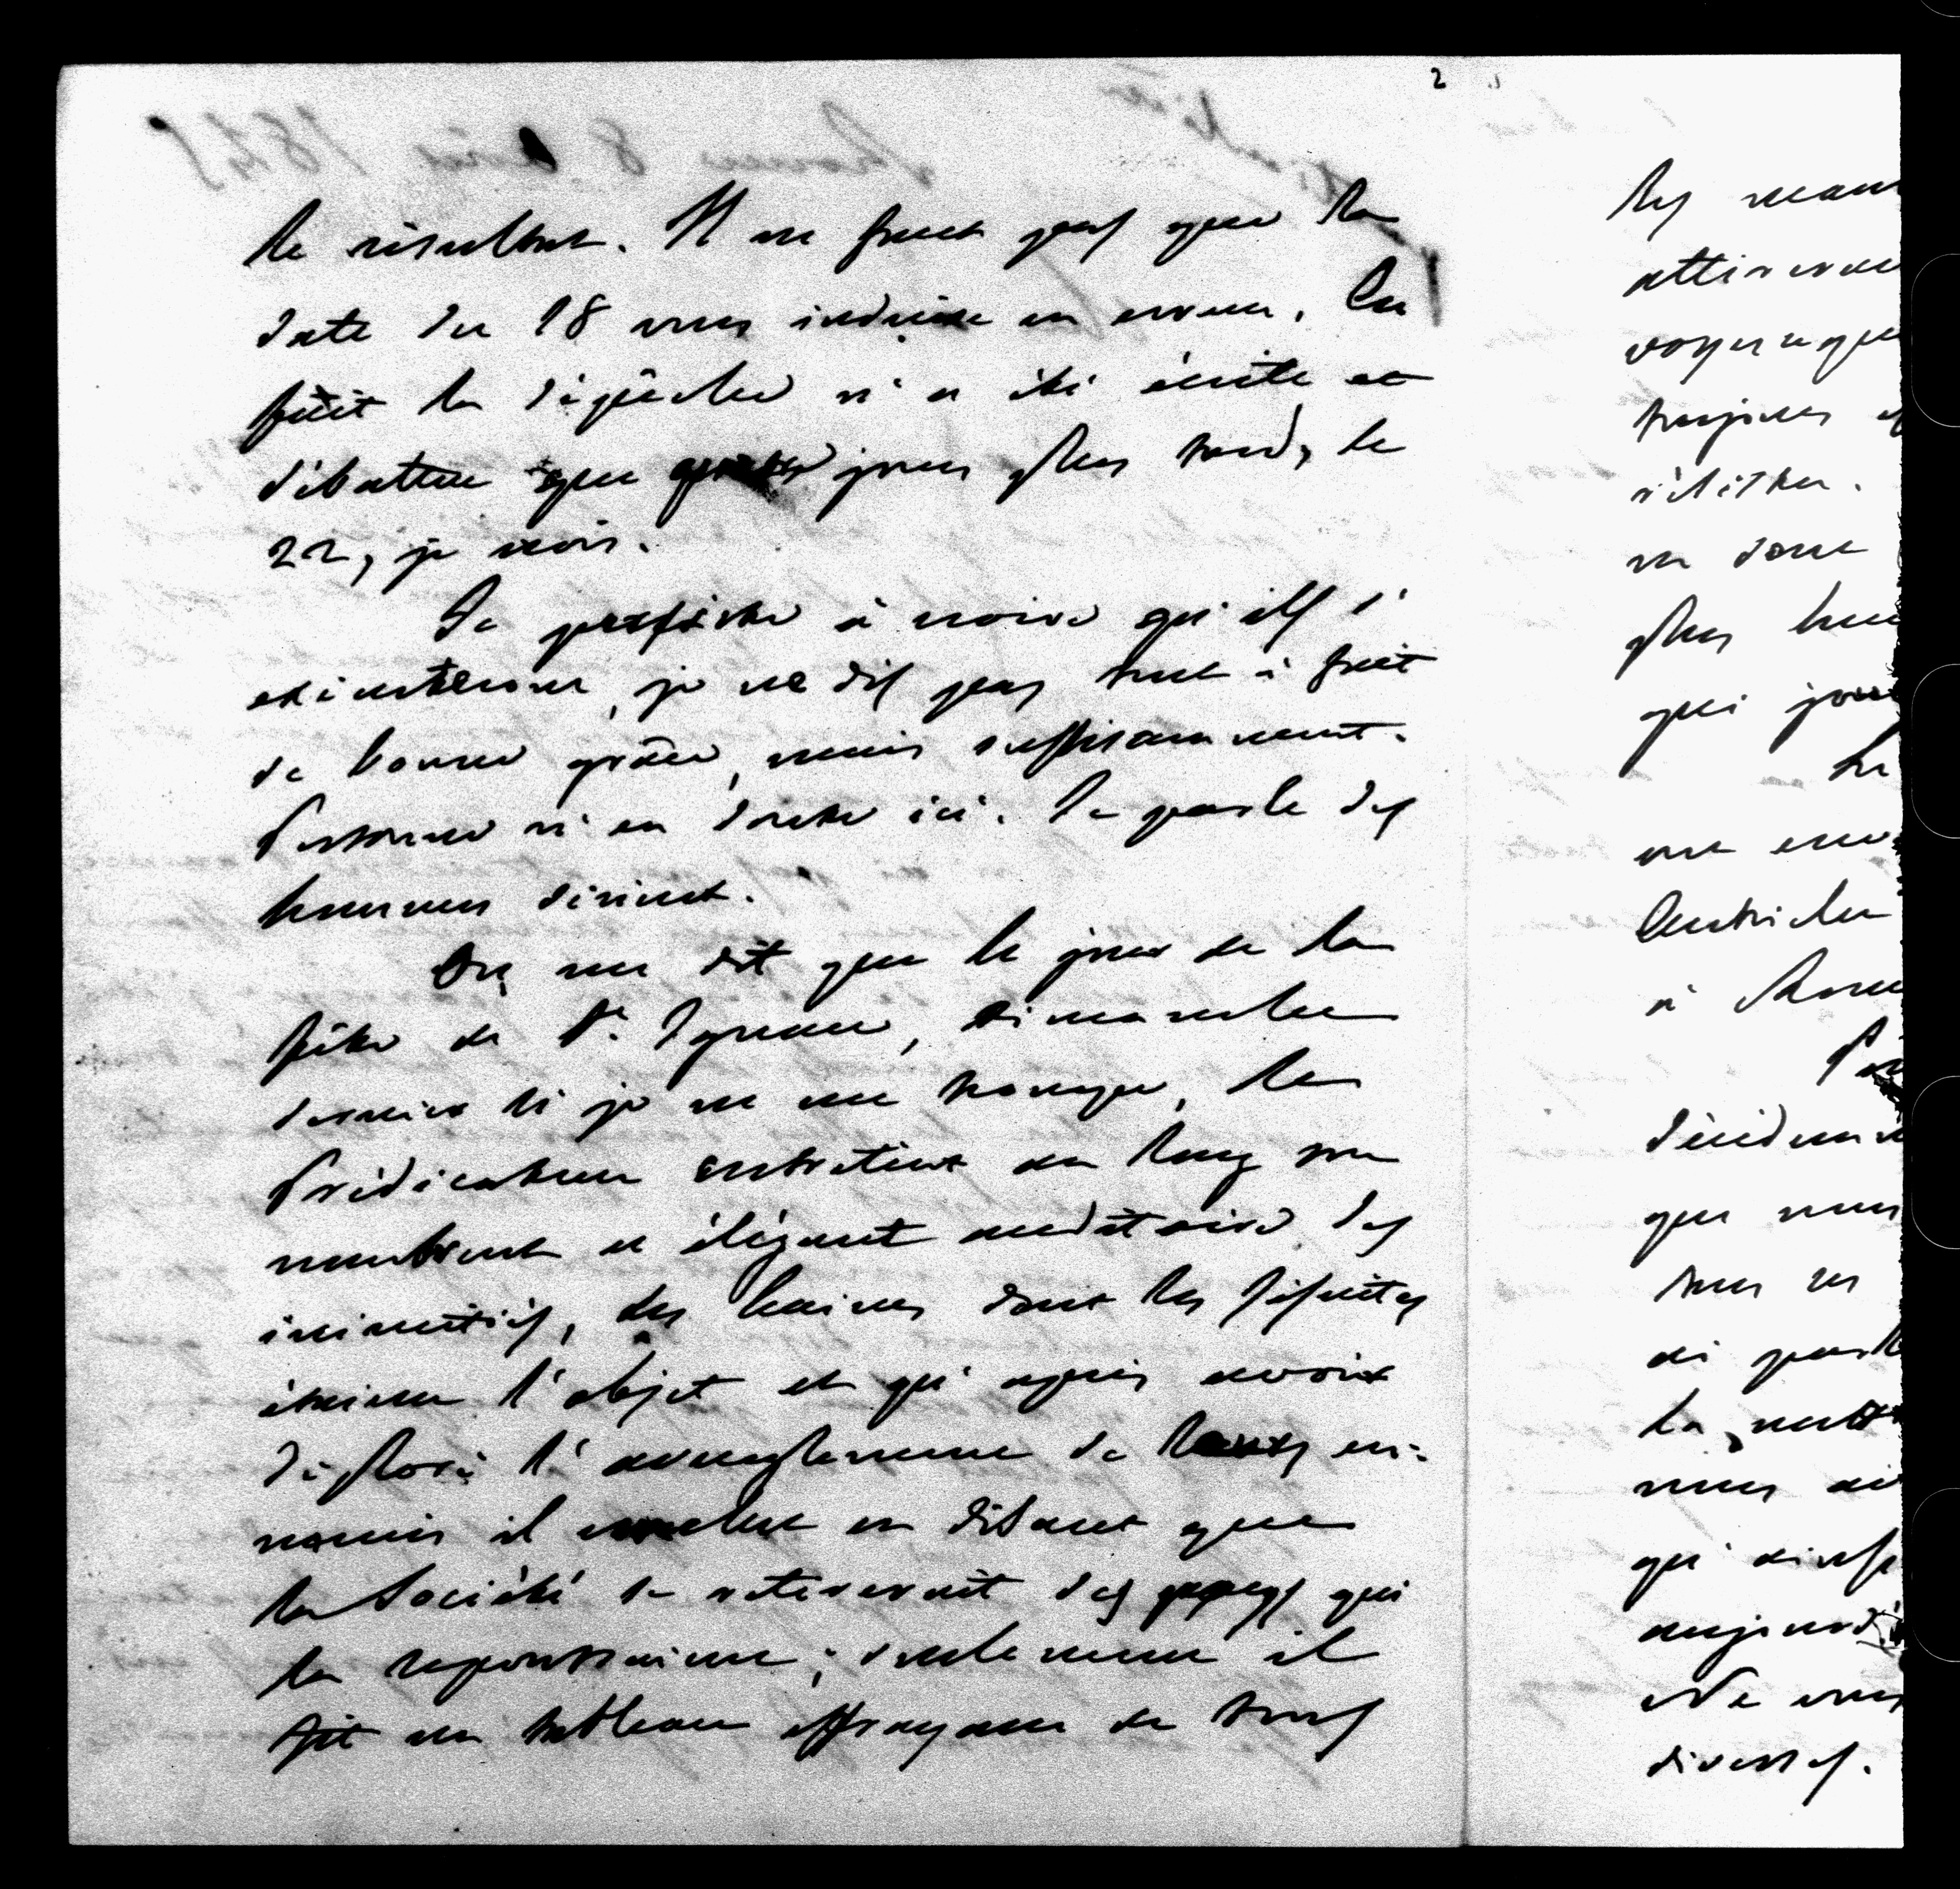 2
le résultat. Il ne faut pas que la
date du 18 vous induise en erreur. En
fait la dépêche n'a été écrite et
débattue que jours plus tard, le
22, je crois.
Je persiste à croire qu'ils s'
exécuteront, je ne dis pas tout à fait
de bonne grâce, mais suffisamment.
Personne n'en doute ici. Je parle des
hommes
On me dit que le jour de la
fête de St. Ignace, dimanche
dernier si je ne me trompe, le
Prédicateur entretint au long son
nombreux et élégant auditoire des
inimitiés, des haines dont les Jésuites
étaient l'objet et qu'après avoir
déploré l'aveuglement de leurs en-
nemis il conclut en disant que
la Société se retirerait des pays qui
la repoussaient; seulement il
fit un tableau effrayant de tous
les
attireraient
toujours
ne sont
plus
qui
Le
ont
Autrichien
à Rome
que nous
tous les
de parler
la
nous
qu'
aujourd'
Ne vous
diverses.